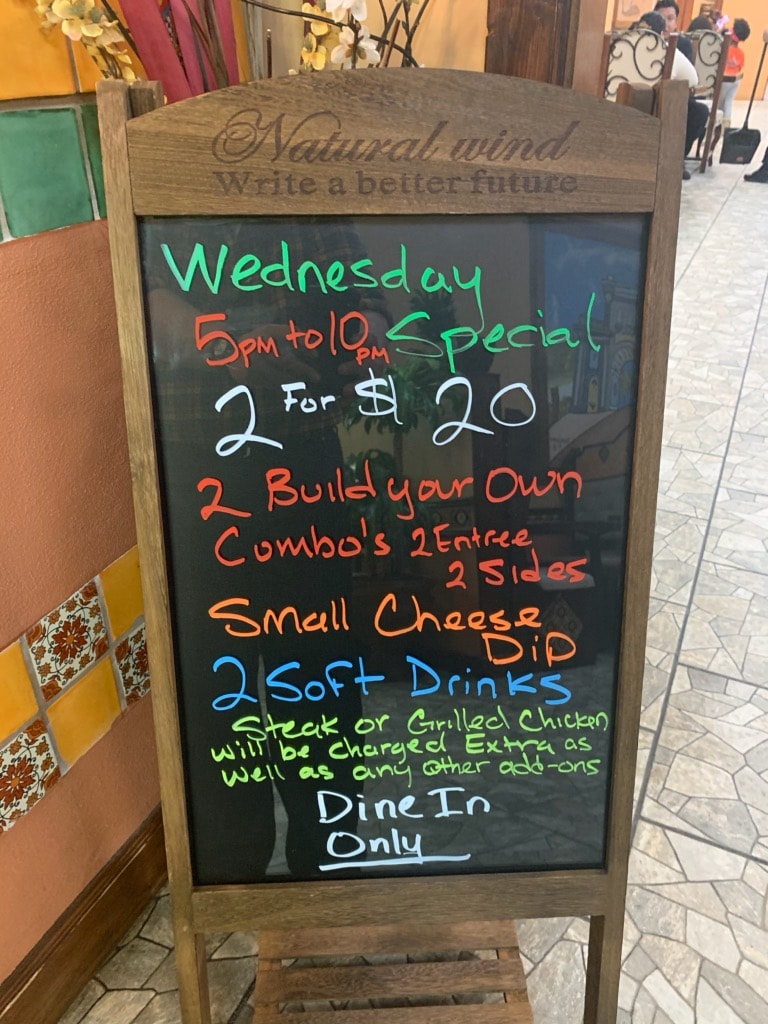 Natural wind
Write a better future
Wednesday
5pm to 10pm Special
2 For $ 20
2 Build your Own
Combo's 2 Entree
2 Sides
Small Cheese
Dip
2 Soft Drinks
Steak or Grilled Chicken
will be charged Extra as
well as any other add-ons
Dine In
Only